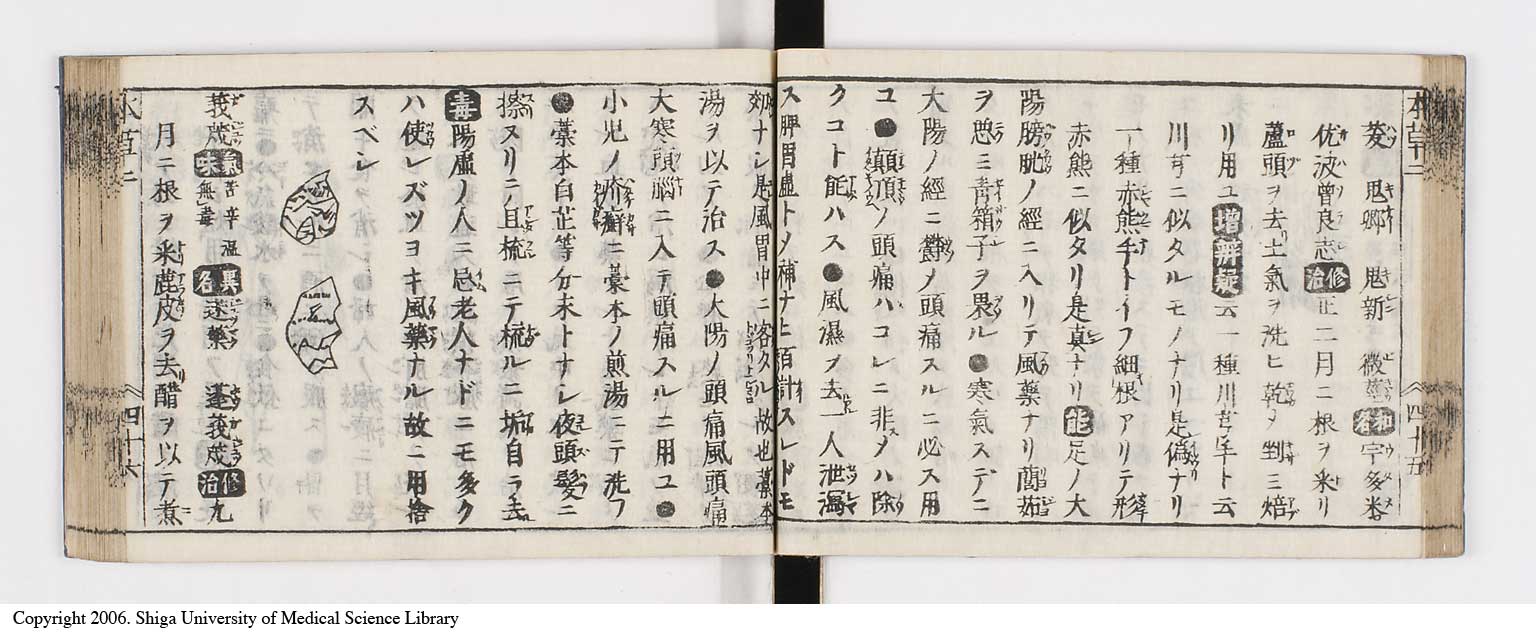 本草二
四十五
茇 鬼卿 鬼新 微莖 和名 宇多米
佐波曽良志 修治 正二月ニ根ヲ采リ
蘆頭ヲ去土氣ヲ洗ヒ乾ヲ剉ミ焙
リ用ユ 増辨疑 云一種川芎本ト云
川芎ニ似タルモノナリ是偽ナリ
一種赤熊手トイフ細根アリテ形
赤熊ニ似タリ是真ナリ 能 足ノ大
陽膀胱ノ經ニ入リテ風藥ナリ䕡茹
ヲ惡ミ青箱子ヲ畏ル●寒氣スデニ
大陽ノ經ニ欝メ頭痛スルニ必ス用
ユ●巓頂ノ頭痛ハコレニ非メハ除
クコト能ハス●風濕ヲ去一人泄瀉
ス脾胃虚トメ補ナヒ百計スレドモ
効ナシ是風胃中ニ客タル故也藁本
湯ヲ以テ治ス●大陽ノ頭痛風頭痛
大寒頭腦ニ入テ頭痛スルニ用ユ●
小児ノ疥癬ニ藁本ノ煎湯ニテ洗フ
●藁本白芷等分末トナシ夜頭髮ニ
擦スリ旦梳ニテ梳ルニ垢自ラ去
毒 陽虚ノ人ニ忌老人ナドニモ多ク
ハ使レズツヨキ風藥ナル故ニ用捨
スベシ
莪朮 氣味 苦辛温無毒 異名 迷藥 蓬莪朮 修治 九
月ニ根ヲ采麁皮ヲ去醋ヲ以テ煮
本草二
四十六
Copyright 2006. Shiga University of Medical Science Library